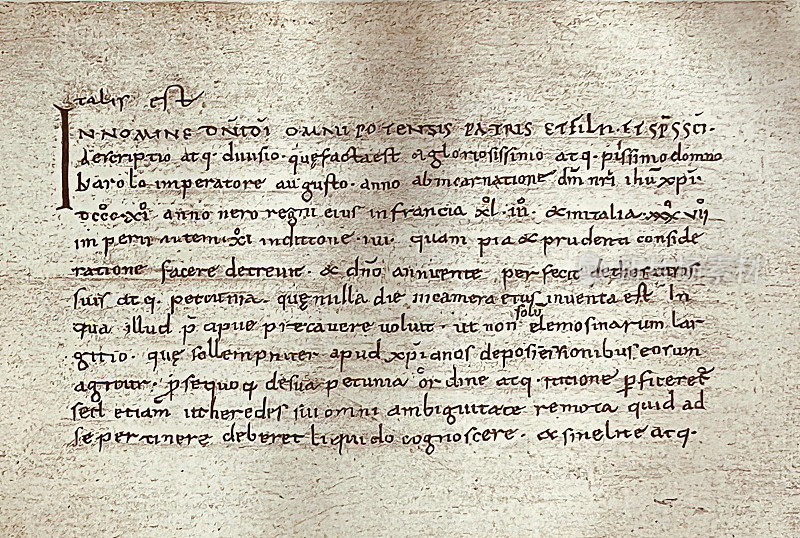 talis est
IN NOMINE DNI DI OMNIPOTENSIS PATRIS ET FILII · ET SPS SCI ·
Descriptio atq · diuisio · quę facta est a gloriosissimo atq · piissimo domno
karolo imperatore augusto · anno ab incarnatione dni nri ihu xpi
DCCC · XI · anno uero regni eius in francia XL · III · & in italia · XXX VII
imperii autem · XI indictione · IIII · quam pia & prudenti conside
ratione facere decreuit · & dno annuente perfecit de thesauris
suis atq · pecunia · quę in illa die in camera eius inuenta est In
qua illud p̄cipue precauere uoluit · ut non solū elemosinarum lar
gitio · quę sollempniter apud xpianos de possessionibus eorum
agitur · p se quoq de sua pecunia ordine atq · ratione pficeret
sed etiam ut heredes sui omni ambiguitate remota quid ad
se pertinere deberet liquido cognoscere · & s melite atq ·